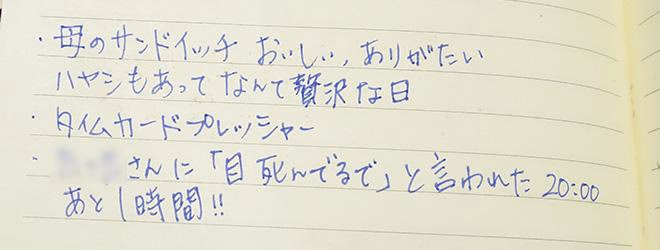 ・母のサンドイッチ おいしい，ありがたい
ハヤシもあって なんて贅沢な日
・タイムカードプレッシャー
・さんに「目 死んでるで」と言われた 20:00
あと1時間!!